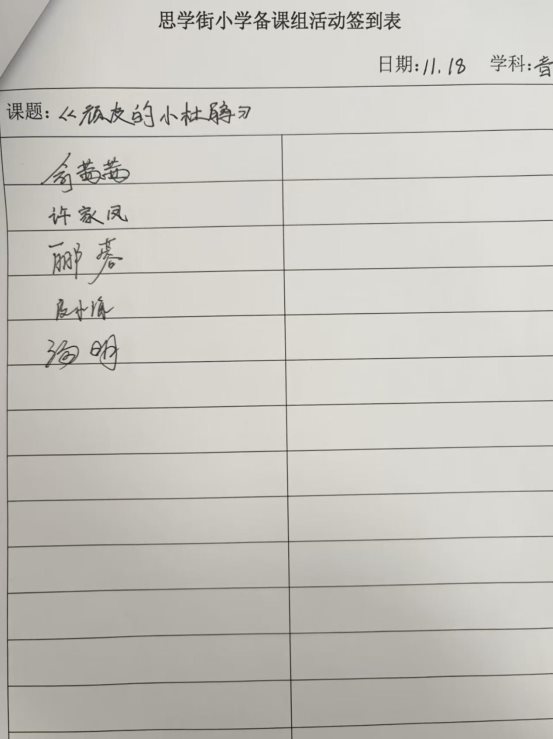 思学街小学备课组活动签到表
日期:11.18 学科:音
课题:《顽皮的小杜鹃》
俞茜茜
许家凤
郦慕
明